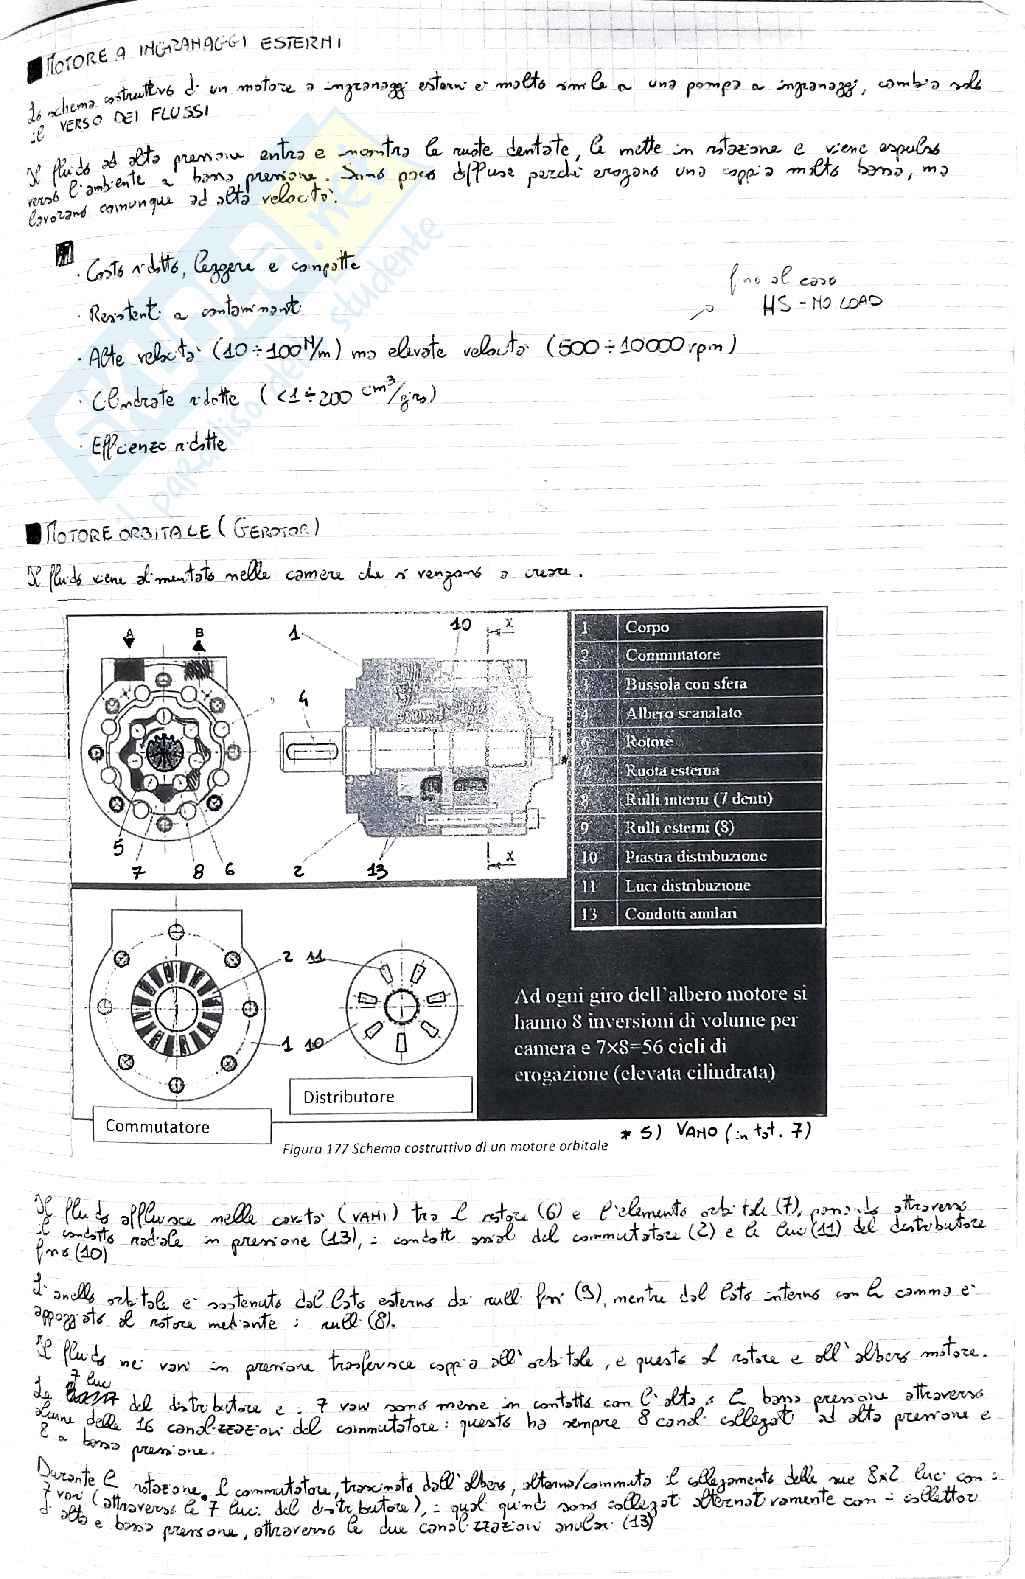 MOTORE A INGRANAGGI ESTERNI
Lo schema costruttivo di un motore a ingranaggi esterni è molto simile a una pompa a ingranaggi, cambia solo
il VERSO DEI FLUSSI
Il fluido ad alta pressione entra e incontra le ruote dentate, le mette in rotazione e viene espulso
verso l'ambiente a bassa pressione. Sono poco diffuse perché erogano una coppia molto bassa, ma
lavorano comunque ad alta velocità.
· Costo ridotto, leggere e compatte
fino al caso
HS - NO LOAD
· Resistenti a contaminanti
· Alte velocità (10÷100 N/m) ma elevate velocità (500÷10000 rpm)
· Cilindrate ridotte (<1÷200 cm³/giro)
· Efficienze ridotte
MOTORE ORBITALE (GEROTOR)
Il fluido viene alimentato nelle camere che si vengono a creare.
A B
1 10 X
4
5 7 8 6 2 13 X
1 Corpo
2 Commutatore
3 Bussola con sfera
4 Albero scanalato
6 Rotore
7 Ruota esterna
8 Rulli interni (7 denti)
9 Rulli esterni (8)
10 Piastra distribuzione
11 Luci distribuzione
13 Condotti anulari
2 11
1 10
Ad ogni giro dell'albero motore si
hanno 8 inversioni di volume per
camera e 7×8=56 cicli di
erogazione (elevata cilindrata)
Distributore
Commutatore
* 5) VANO (in tot. 7)
Figura 177 Schema costruttivo di un motore orbitale
Il fluido affluisce nelle cavità (VANI) tra il rotore (6) e l'elemento orbitale (7), passando attraverso
il condotto radiale in pressione (13), i condotti assiali del commutatore (2) e le luci (11) del distributore
fisso (10)
L'anello orbitale è sostenuto dal lato esterno da rulli fissi (9), mentre dal lato interno con la camma è
appoggiato al rotore mediante i rulli (8).
Il fluido nei vani in pressione trasferisce coppia all'orbitale, e questo al rotore e all'albero motore.
Le 7 luci del distributore e i 7 vani sono messe in contatto con l'alta e la bassa pressione attraverso
alcune delle 16 canalizzazioni del commutatore: questo ha sempre 8 canali collegati ad alta pressione e
8 a bassa pressione.
Durante la rotazione, il commutatore, trascinato dall'albero, alterna/commuta il collegamento delle sue 8×2 luci con i
7 vani (attraverso le 7 luci del distributore), i quali quindi sono collegati alternativamente con i collettori
di alta e bassa pressione, attraverso le due canalizzazioni anulari (13)
il paradiso dello studente